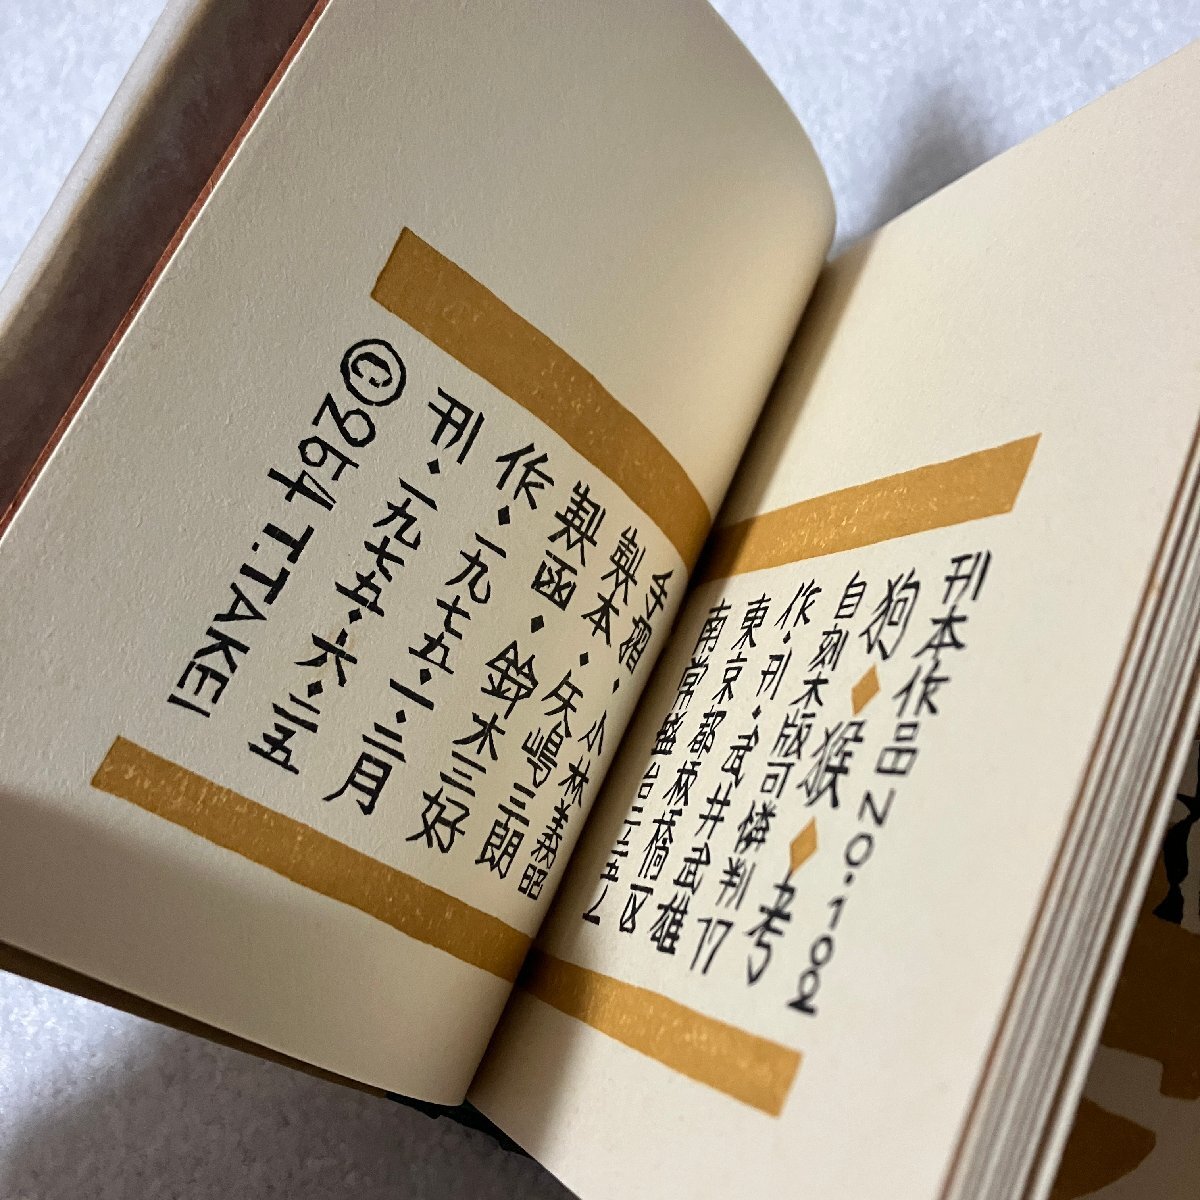 刊本作品 NO.102
狗◆猴◆考
自刻木版可憐判17
作・刊◆武井武雄
東京都板橋区
南常盤台
手摺・小林義昭
製本・矢嶋三朗
製函・鈴木三好
作・一九七五・一・二月
刊・一九七五・六・二五
©264 T.TAKEI